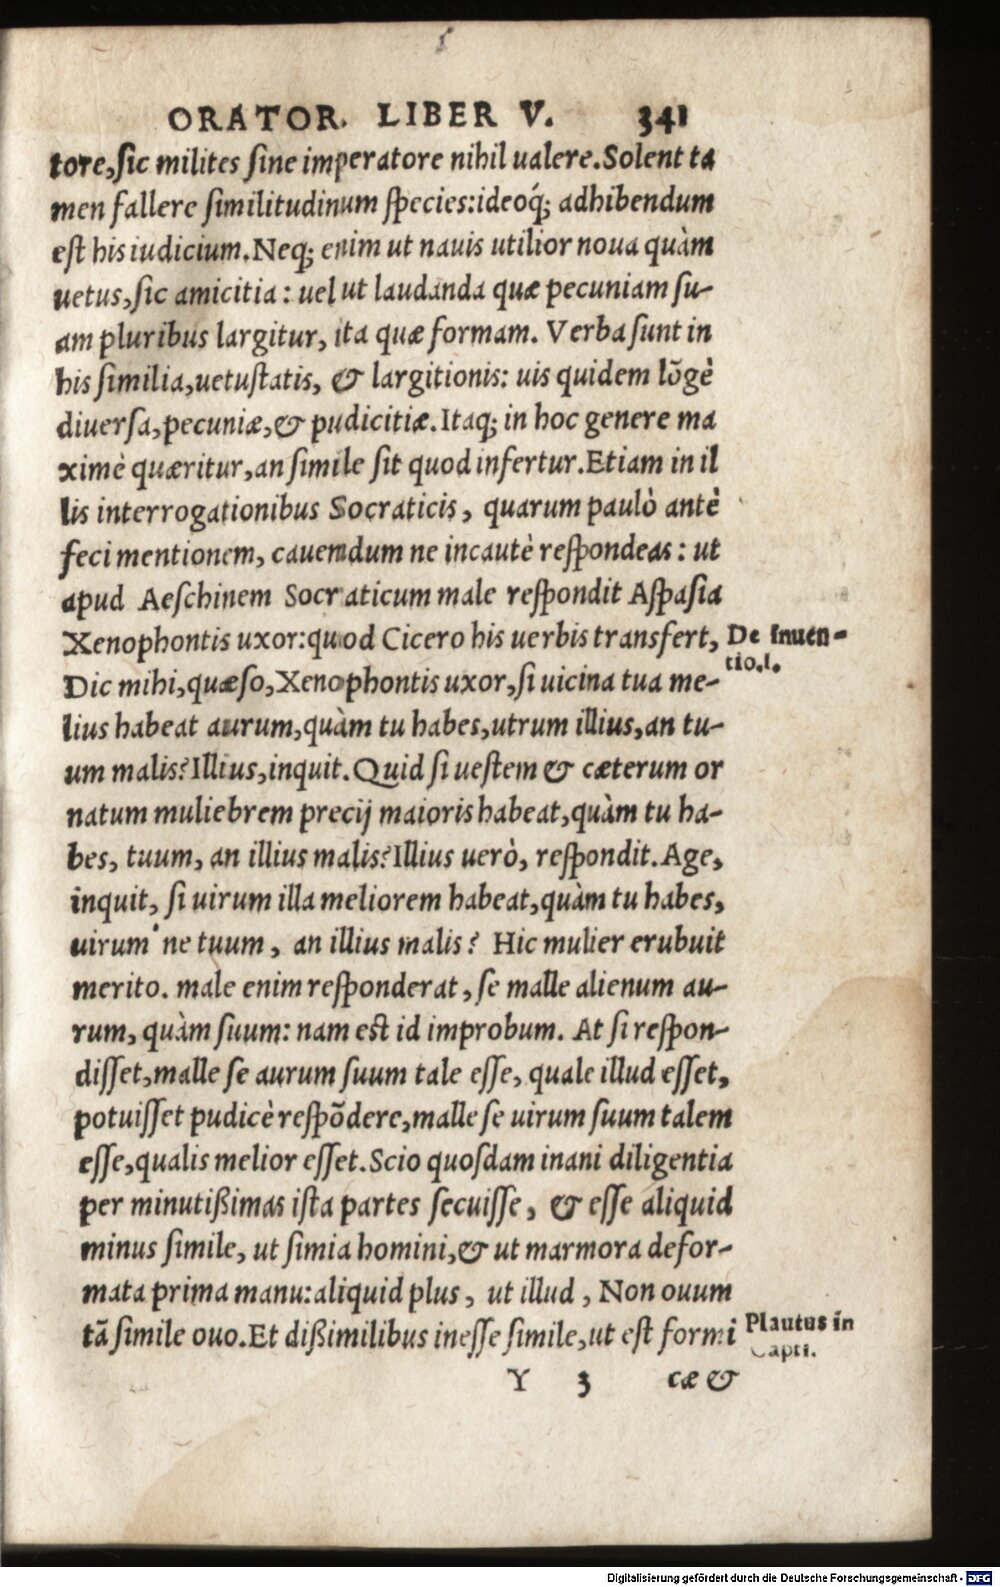 ORATOR. LIBER V. 341
tore,sic milites sine imperatore nihil ualere.Solent ta
men fallere similitudinum species:ideoq́; adhibendum
est his iudicium.Neq; enim ut nauis utilior noua quàm
uetus,sic amicitia: uel ut laudanda quæ pecuniam su-
am pluribus largitur, ita quæ formam. Verba sunt in
his similia,uetustatis, & largitionis: uis quidem lõgè
diuersa,pecuniæ,& pudicitiæ.Itaq; in hoc genere ma
ximè quæritur,an simile sit quod infertur.Etiam in il
lis interrogationibus Socraticis, quarum paulò antè
feci mentionem, cauendum ne incautè respondeas: ut
apud Aeschinem Socraticum male respondit Aspasia
Xenophontis uxor:quod Cicero his uerbis transfert,
De inuen-
tio.1.
Dic mihi,quæso,Xenophontis uxor,si uicina tua me-
lius habeat aurum,quàm tu habes,utrum illius,an tu-
um malis?Illius,inquit.Quid si uestem & cæterum or
natum muliebrem precij maioris habeat,quàm tu ha-
bes, tuum, an illius malis?Illius uerò, respondit.Age,
inquit, si uirum illa meliorem habeat,quàm tu habes,
uirum'ne tuum, an illius malis? Hic mulier erubuit
merito. male enim responderat, se malle alienum au-
rum, quàm suum: nam est id improbum. At si respon-
disset,malle se aurum suum tale esse, quale illud esset,
potuisset pudicè respõdere,malle se uirum suum talem
esse,qualis melior esset.Scio quosdam inani diligentia
per minutißimas ista partes secuisse, & esse aliquid
minus simile, ut simia homini,& ut marmora defor-
mata prima manu:aliquid plus, ut illud, Non ouum
tã simile ouo.Et dißimilibus inesse simile,ut est formi
Plautus in
Capti.
Y 3 cæ &
Digitalisierung gefördert durch die Deutsche Forschungsgemeinschaft - DFG